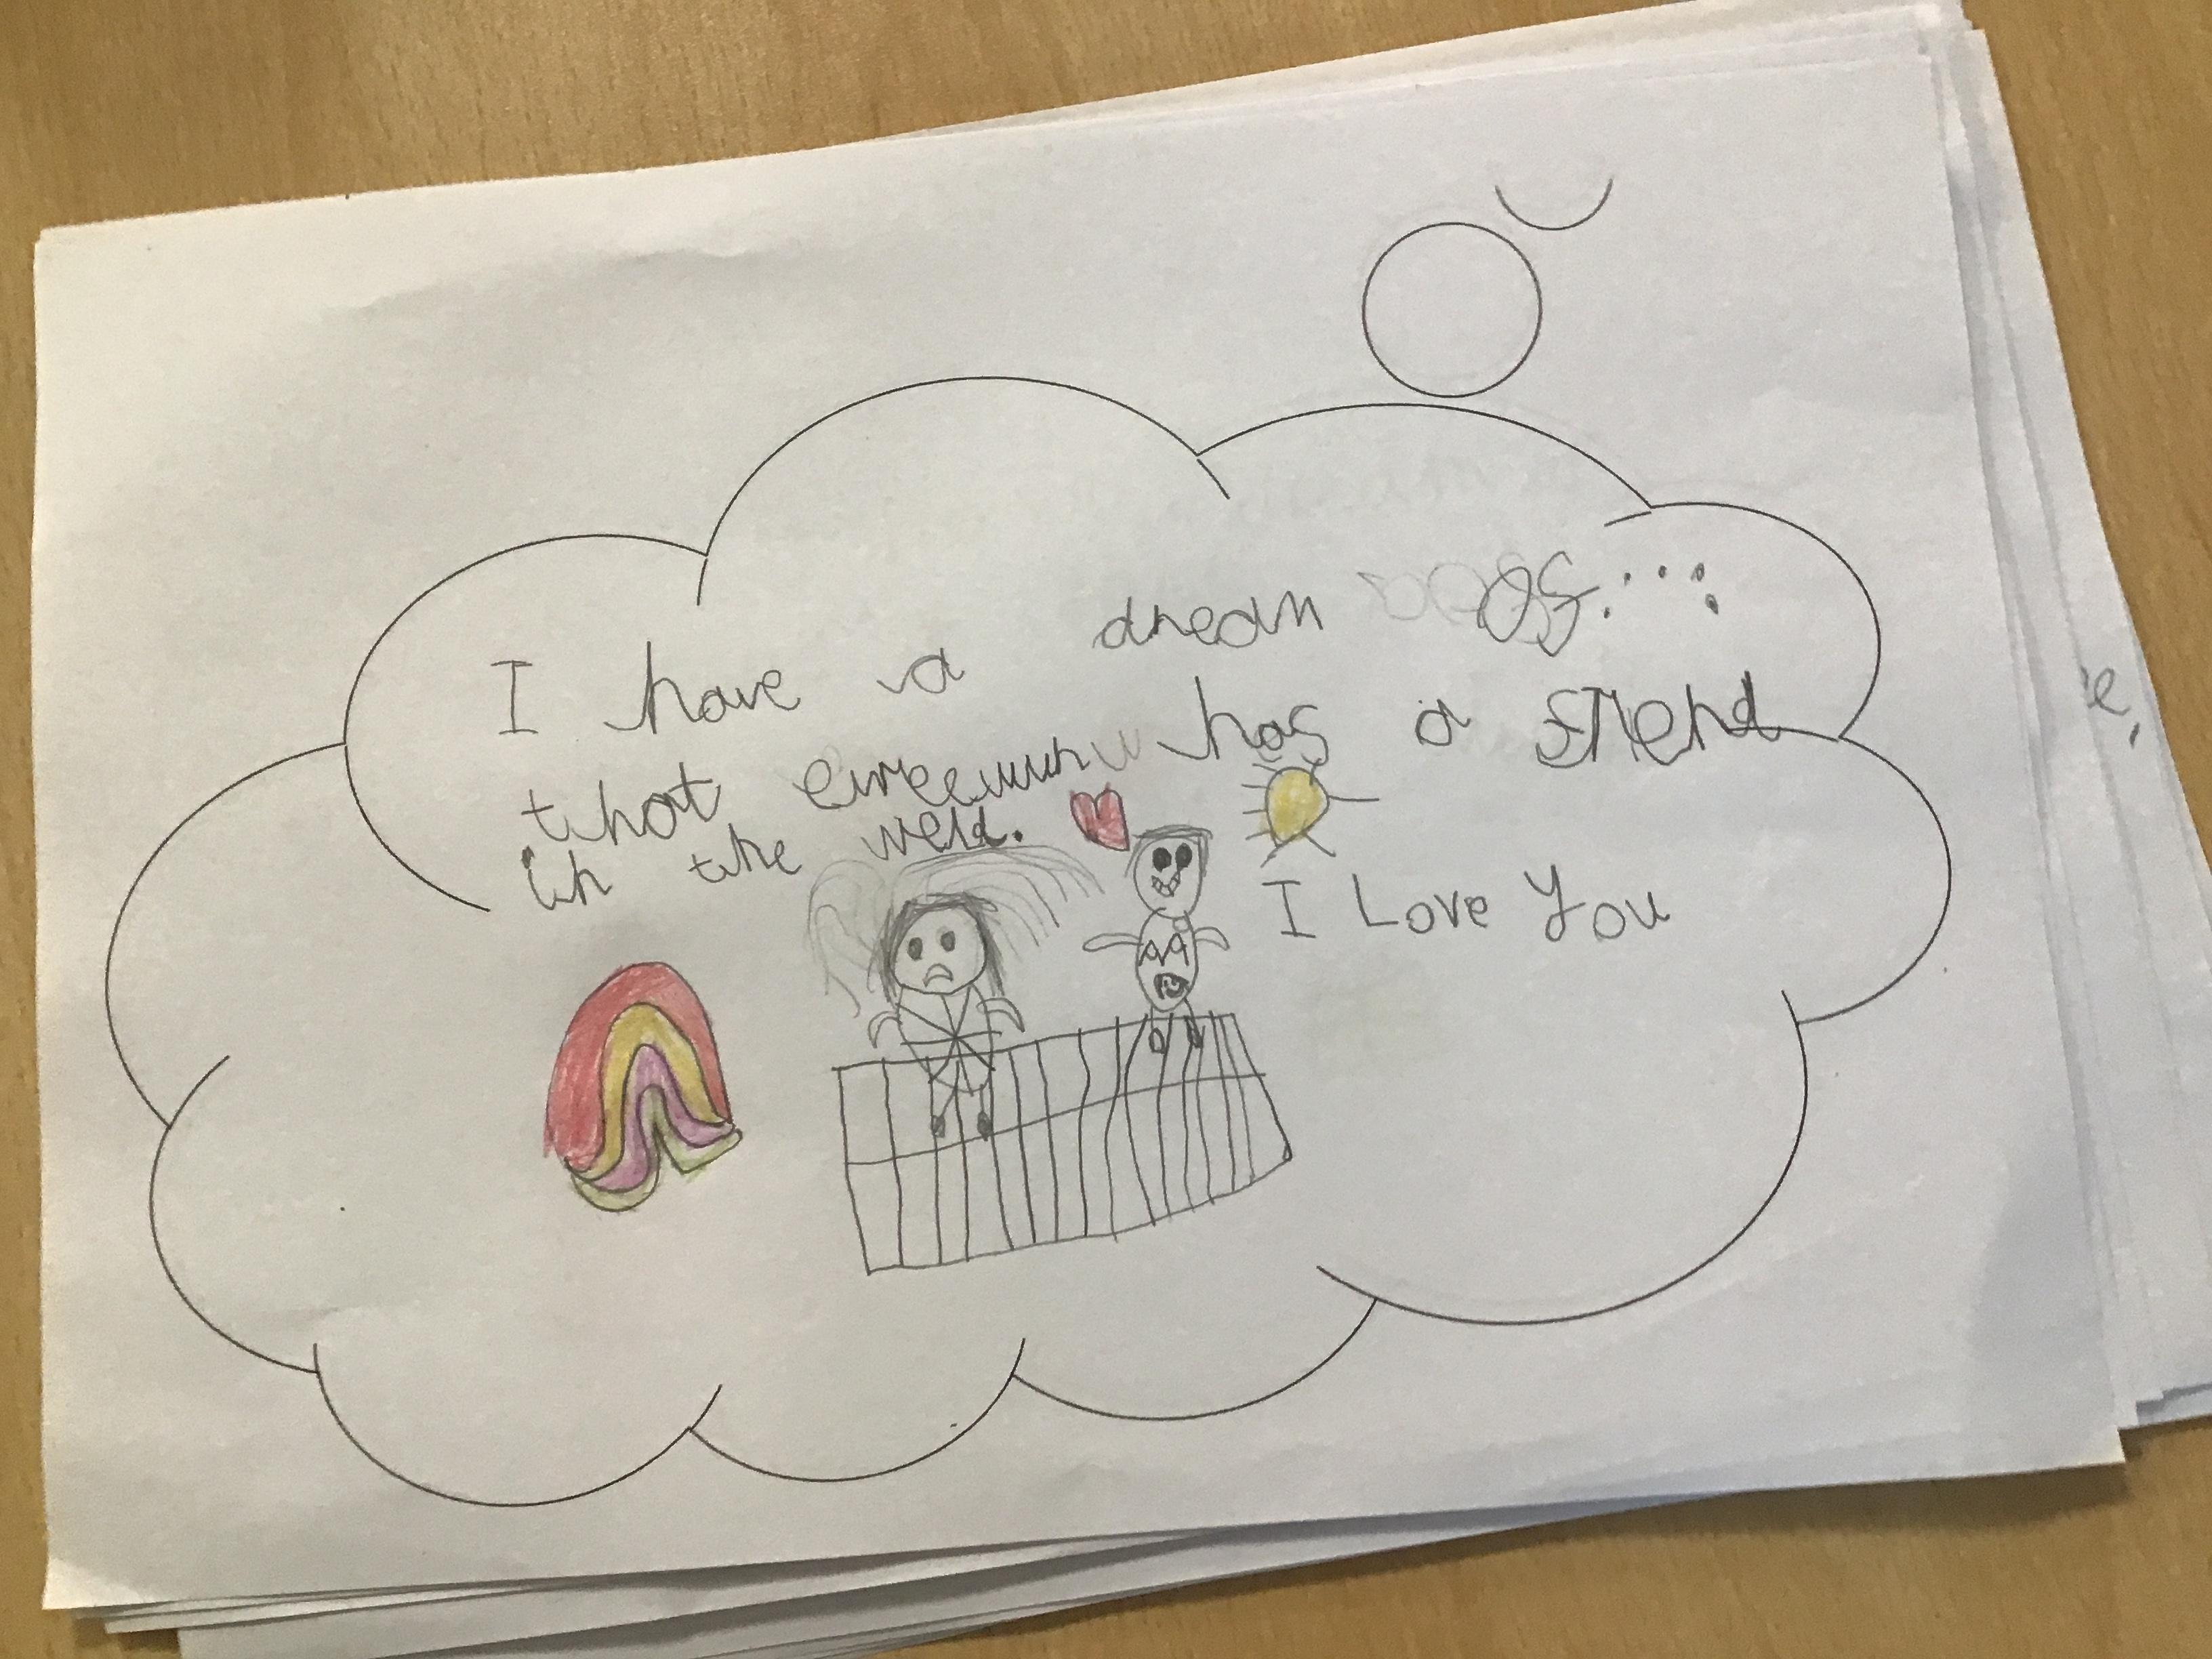 I have a dream of.....
that eireewun has a friend
in the weld.
I Love You
e,